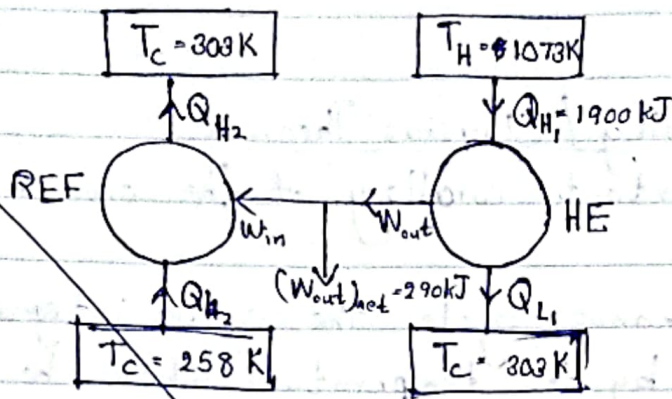 T_C = 303 K
T_H = 1073K
Q_H2
Q_H1 = 1900 kJ
REF
HE
W_in
W_out
(W_out)_net = 290kJ
Q_L2
Q_L1
T_C = 258 K
T_C = 303 K